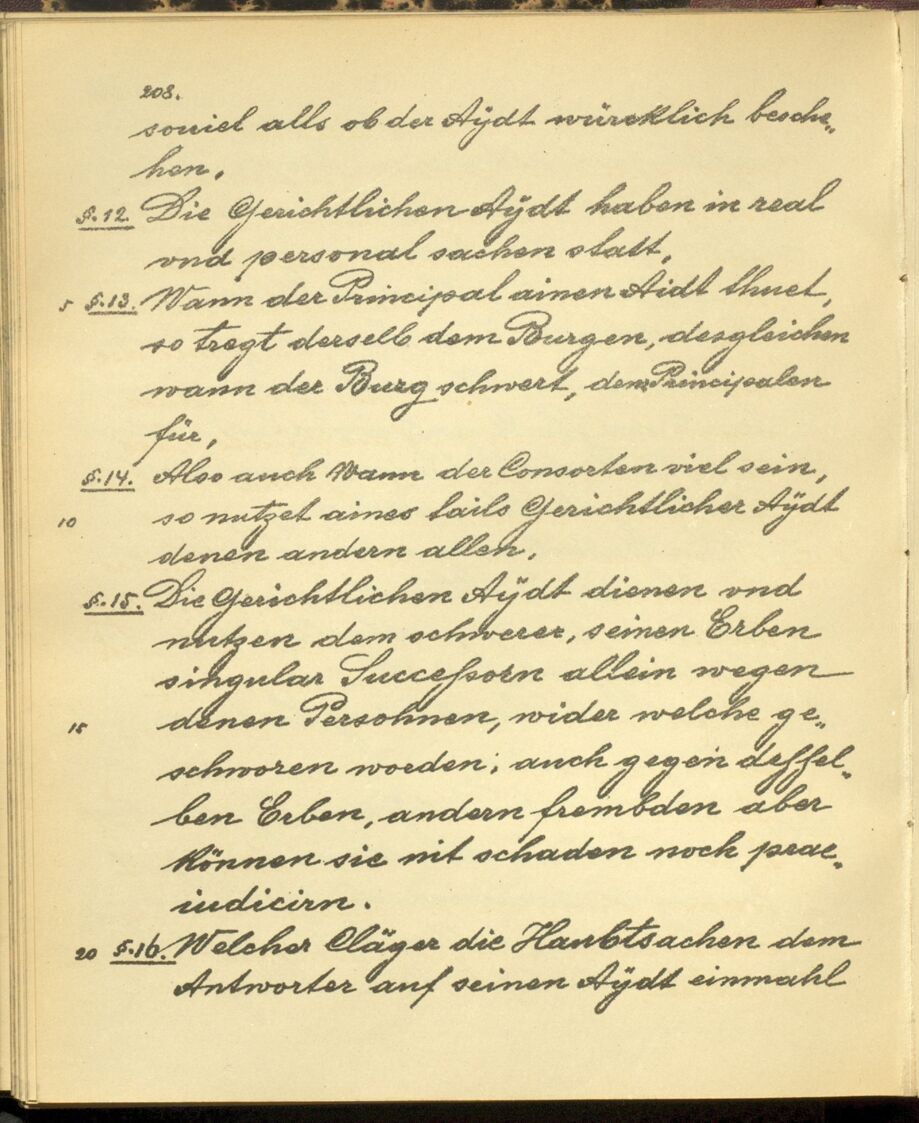 208.
souiel alls ob der Aÿdt würcklich besche„
hen.
§.12. Die Gerichtlichen Aÿdt haben in real
vnd personal sachen statt.
5 §.13. Wann der Principal ainen Aidt thuet,
so tregt derselb dem Burgen, desgleichen
wann der Burg schwert, dem Principalen
für,
§.14. Also auch Wann der Consorten viel sein,
10 so nutzet aines tails Gerichtlicher Aÿdt
denen andern allen.
§.15. Die Gerichtlichen Aÿdt dienen vnd
nutzen dem schwerer, seinen Erben
singular Successorn allein wegen
15 denen Persohnen, wider welche ge„
schworen worden; auch gegen dessel„
ben Erben, andern frembden aber
können sie nit schaden noch prae„
iudicirn.
20 §.16. Welcher Cläger die Haubtsachen dem
Antworter auf seinen Aÿdt einmahl